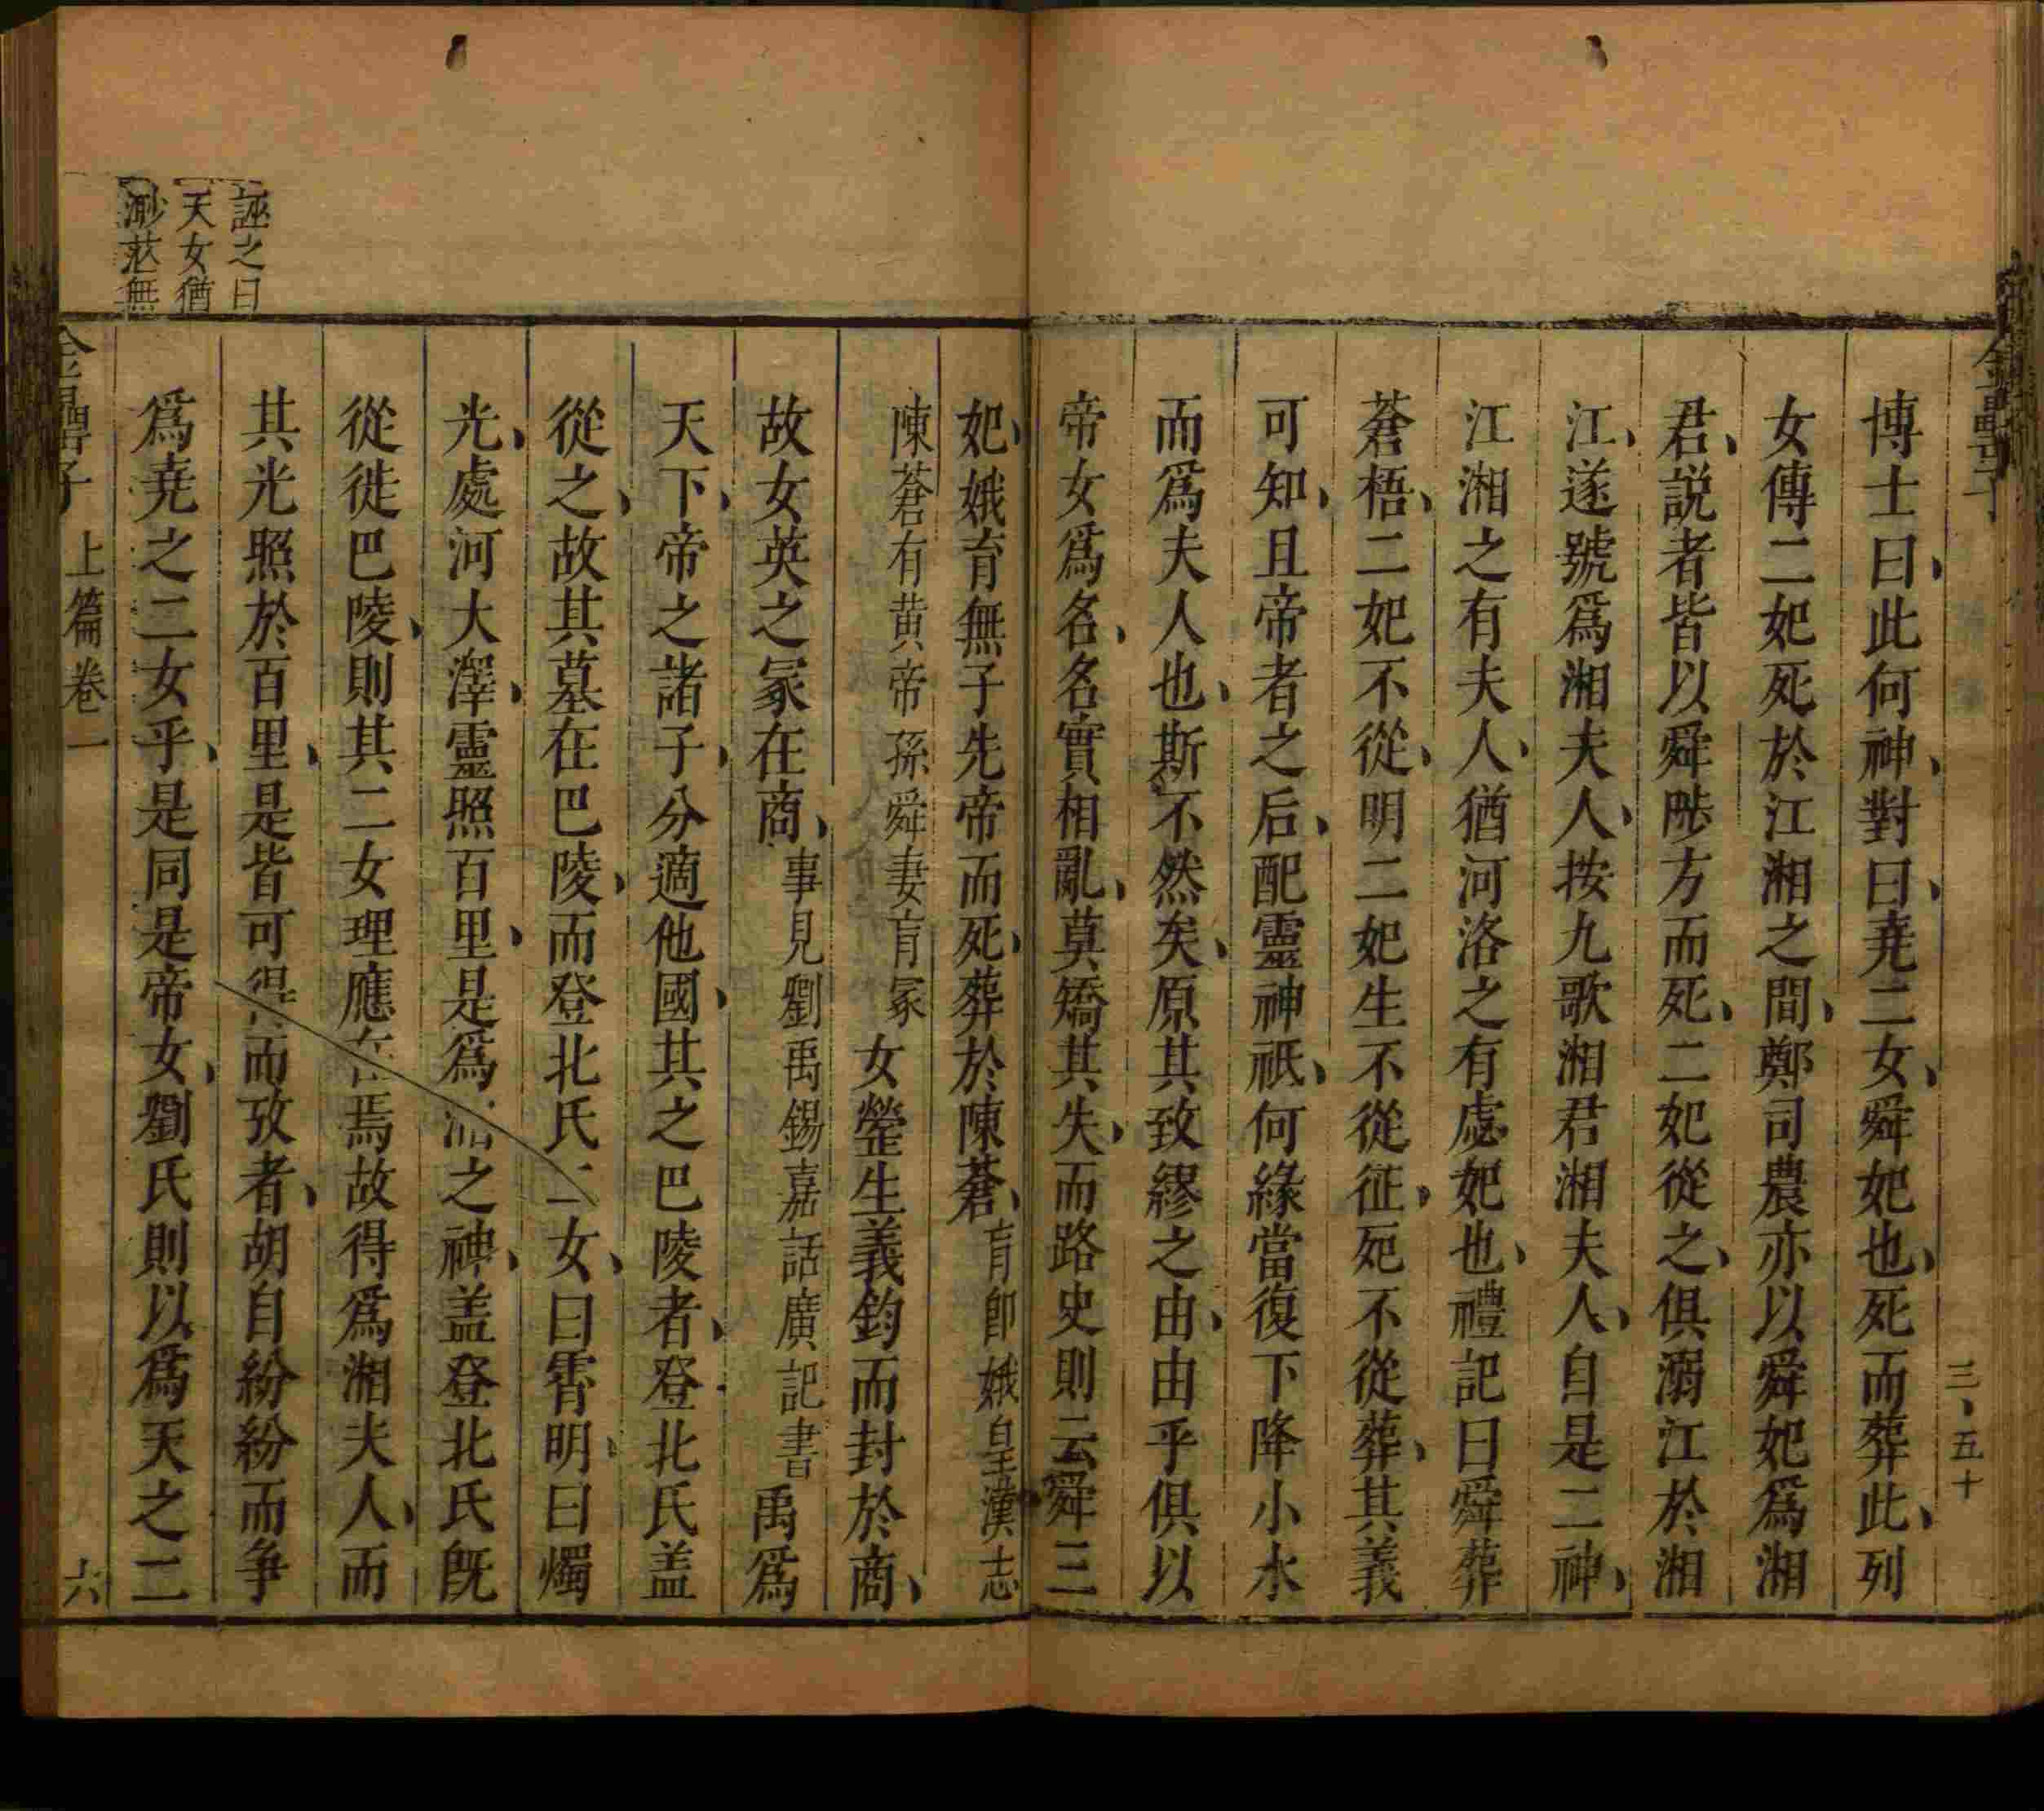 金罍子
三、五十
博士曰、此何神、對曰、堯二女、舜妃也、死而葬此、列
女傳二妃死於江湘之間、鄭司農亦以舜妃爲湘
君、説者皆以舜陟方而死、二妃從之、俱溺江於湘
江、遂號爲湘夫人、按九歌湘君湘夫人、自是二神、
江湘之有夫人、猶河洛之有處妃也、禮記曰舜葬
蒼梧、二妃不從、明二妃生不從征、死不從葬、其義
可知、且帝者之后、配靈神祇、何緣當復下降小水
而爲夫人也、斯不然矣、原其致繆之由、由乎俱以
帝女爲名、名實相亂、莫矯其失、而路史則云舜三
妃、娥育無子先帝而死、葬於陳蒼、育卽娥皇漢志
陳蒼有黄帝孫舜妻育冢女罃生義鈞而封於商、
故女英之冢在商、事見劉禹錫嘉話廣記書禹爲
天下、帝之諸子、分適他國、其之巴陵者、登北氏盖
從之、故其墓在巴陵、而登北氏二女、曰霄明、曰燭
光、處河大澤、靈照百里、是爲湘之神、盖登北氏旣
從徙巴陵、則其二女理應在焉故得爲湘夫人、而
其光照於百里、是皆可得而攷者、胡自紛紛而争
爲堯之二女乎、是同是帝女、劉氏則以爲天之二
誣之曰
天女猶
渺茫無
金罍子 上篇卷一 六